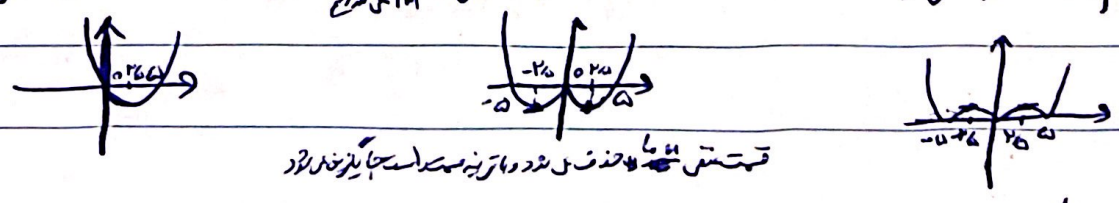 ۰ ۲٫۵ ۵
-۵ -۲٫۵ ۰ ۲٫۵ ۵
-۵ -۲٫۵ ۲٫۵ ۵
قسمت منفی حذف می شود و با قرینه سمت راست جایگزین می شود